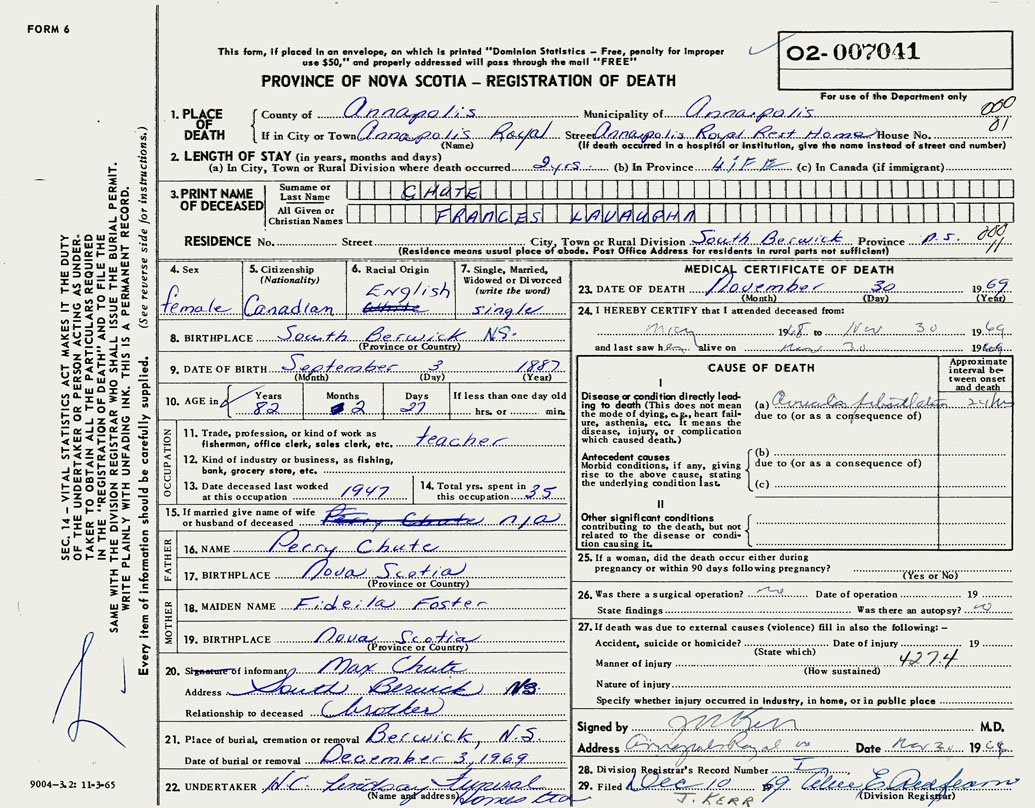 FORM 6
This form, if placed in an envelope, on which is printed "Dominion Statistics – Free, penalty for improper
use $50," and properly addressed will pass through the mail "FREE"
02-007041
PROVINCE OF NOVA SCOTIA – REGISTRATION OF DEATH
For use of the Department only
1. PLACE OF DEATH
County of Annapolis Municipality of Annapolis 000
If in City or Town Annapolis Royal Street Annapolis Royal Rest Home House No. 01
(Name) (If death occurred in a hospital or institution, give the name instead of street and number)
2. LENGTH OF STAY (in years, months and days)
(a) In City, Town or Rural Division where death occurred 2 yrs. (b) In Province LIFE (c) In Canada (if immigrant)
3. PRINT NAME OF DECEASED
Surname or Last Name CHUTE
All Given or Christian Names FRANCES LAVAUGHN
RESIDENCE No. Street City, Town or Rural Division South Berwick Province N.S. 000
11
(Residence means usual place of abode. Post Office Address for residents in rural parts not sufficient)
4. Sex
female
5. Citizenship
(Nationality)
Canadian
6. Racial Origin
English
7. Single, Married,
Widowed or Divorced
(write the word)
single
8. BIRTHPLACE South Berwick N.S.
(Province or Country)
9. DATE OF BIRTH September 3 1887
(Month) (Day) (Year)
10. AGE in
Years Months Days If less than one day old
82 2 27 hrs. or min.
OCCUPATION
11. Trade, profession, or kind of work as
fisherman, office clerk, sales clerk, etc. teacher
12. Kind of industry or business, as fishing,
bank, grocery store, etc.
13. Date deceased last worked
at this occupation 1947
14. Total yrs. spent in
this occupation 35
15. If married give name of wife
or husband of deceased Perry Chute n/a
FATHER
16. NAME Perry Chute
17. BIRTHPLACE Nova Scotia
(Province or Country)
MOTHER
18. MAIDEN NAME Fideila Foster
19. BIRTHPLACE Nova Scotia
(Province or Country)
20. Signature of informant Max Chute
Address South Berwick NS.
Relationship to deceased brother
21. Place of burial, cremation or removal Berwick, N.S.
Date of burial or removal December 3, 1969
22. UNDERTAKER H.C. Lindsay Funeral
(Name and address) Homes Ltd
MEDICAL CERTIFICATE OF DEATH
23. DATE OF DEATH November 30 1969
(Month) (Day) (Year)
24. I HEREBY CERTIFY that I attended deceased from:
1968 to Nov 30 1969
and last saw her alive on Nov 30 1969
CAUSE OF DEATH
Approximate
interval be-
tween onset
and death
I
Disease or condition directly lead-
ing to death (This does not mean
the mode of dying, e.g., heart fail-
ure, asthenia, etc. It means the
disease, injury, or complication
which caused death.)
(a) Auricular fibrillation 24 hrs
due to (or as a consequence of)
Antecedent causes
Morbid conditions, if any, giving
rise to the above cause, stating
the underlying condition last.
(b)
due to (or as a consequence of)
(c)
II
Other significant conditions
contributing to the death, but not
related to the disease or condi-
tion causing it.
25. If a woman, did the death occur either during
pregnancy or within 90 days following pregnancy?
(Yes or No)
26. Was there a surgical operation? no Date of operation 19
State findings Was there an autopsy? no
27. If death was due to external causes (violence) fill in also the following:–
Accident, suicide or homicide? Date of injury 19
(State which)
Manner of injury 4274
(How sustained)
Nature of injury
Specify whether injury occurred in industry, in home, or in public place
Signed by J M Kerr M.D.
Address Annapolis Royal NS Date Nov 30 1969
28. Division Registrar's Record Number
29. Filed Dec 10 1969
(Division Registrar)
J. KERR
SEC. 14 – VITAL STATISTICS ACT MAKES IT THE DUTY
OF THE UNDERTAKER OR PERSON ACTING AS UNDER-
TAKER TO OBTAIN ALL THE PARTICULARS REQUIRED
IN THE "REGISTRATION OF DEATH" AND TO FILE THE
SAME WITH THE DIVISION REGISTRAR WHO SHALL ISSUE THE BURIAL PERMIT.
WRITE PLAINLY WITH UNFADING INK. THIS IS A PERMANENT RECORD.
Every item of information should be carefully supplied. (See reverse side for instructions.)
9004–3.2: 11-3-65